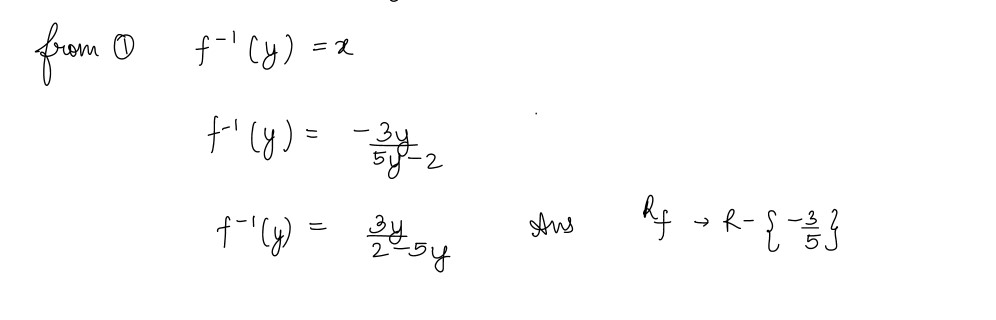 from ① f⁻¹(y) = x
f⁻¹(y) = -3y/5y-2
f⁻¹(y) = 3y/2-5y Ans Rf → R - {-3/5}